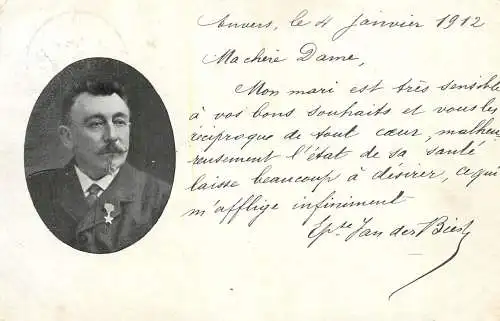 Anvers, le 4 Janvier 1912
Ma chère Dame,
Mon mari est très sensible
à vos bons souhaits et vous les
réciproque de tout cœur, malheu-
reusement l'état de sa santé
laisse beaucoup à désirer, ce qui
m'afflige infiniment
Van der Biest